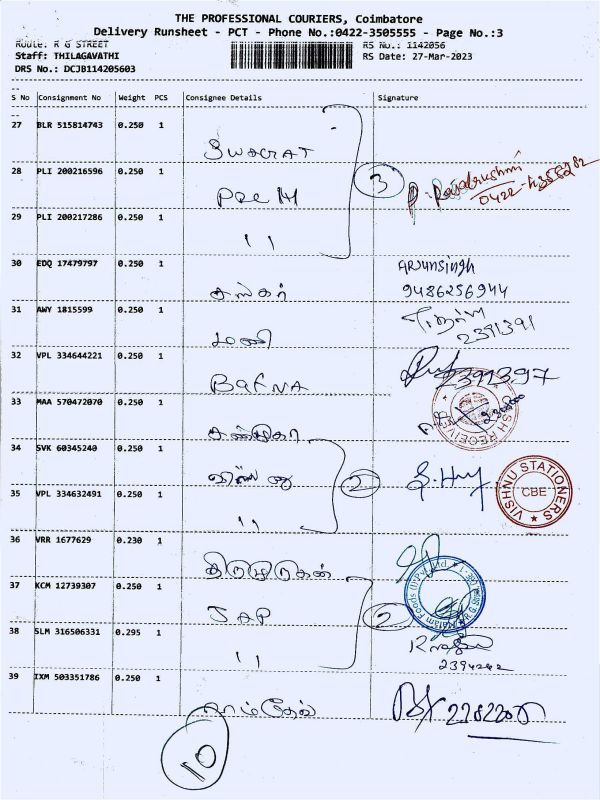 THE PROFESSIONAL COURIERS, Coimbatore
Delivery Runsheet - PCT - Phone No.:0422-3505555 - Page No.:3
Route: R G STREET
RS No.: 1142056
Staff: THILAGAVATHI
RS Date: 27-Mar-2023
DRS No.: DCJB114205603
S No Consignment No Weight PCS Consignee Details Signature
27 BLR 515814743 0.250 1
28 PLI 200216596 0.250 1
3
29 PLI 200217286 0.250 1
ıı
30 EDQ 17479797 0.250 1 Arunsingh
9486256944
31 AWY 1815599 0.250 1
2391391
மணி
32 VPL 334644221 0.250 1
BAFNA 2391397
33 MAA 570472070 0.250 1
34 SVK 60345240 0.250 1
விஷ்ணு 2
VISHNU STATIONERS CBE
35 VPL 334632491 0.250 1
ıı
36 VRR 1677629 0.230 1
திருமுருகன்
37 KCM 12739307 0.250 1
JAP 2
38 SLM 316506331 0.295 1
ıı 2394242
39 IXM 503351786 0.250 1
10